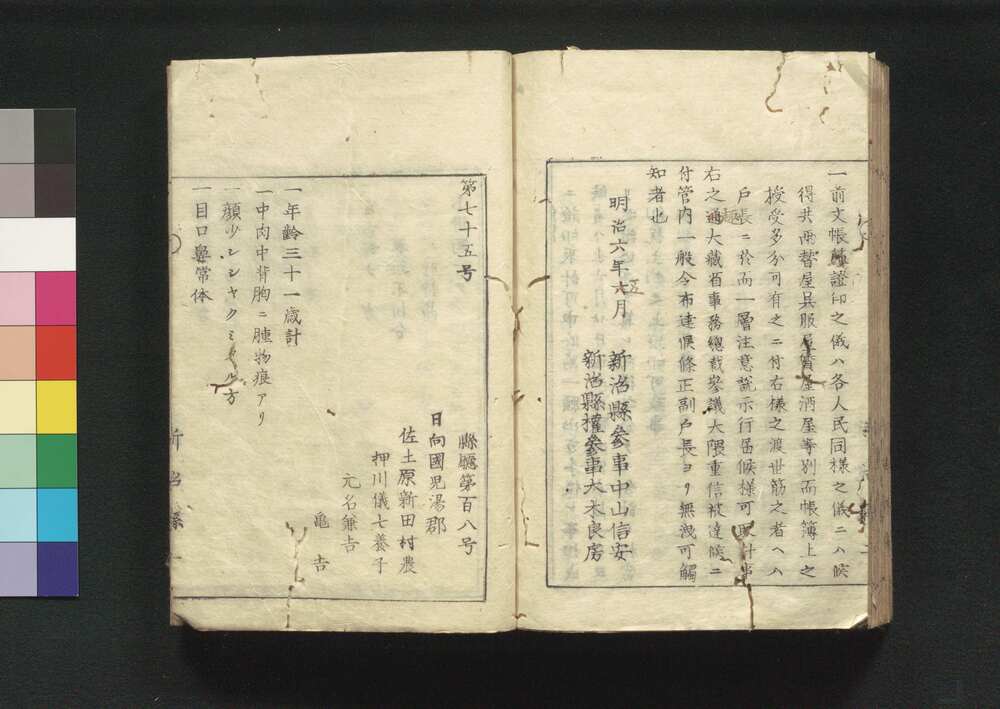 一前文帳簿證印之儀ハ各人民同様之儀ニハ候
得共両替屋呉服屋質屋酒屋等別而帳簿上之
授受多分可有之ニ付右様之渡世筋之者ヘハ
戸長ニ於而一層注意説示行届候様可取計事
右之通大藏省事務總裁參議大隈重信被達候ニ
付管内一般今布達候條正副戸長ヨリ無洩可觸
知者也
明治六年六月
五
新治縣參事中山信安
新治縣權參事大木良房
第七十五号
縣廳第百八号
日向國児湯郡
佐土原新田村農
押川儀七養子
元名兼吉
亀吉
一年齢三十一歳計
一中肉中背胸ニ腫物痕アリ
一顔少シシャクミタル方
一目口鼻常体
新治縣